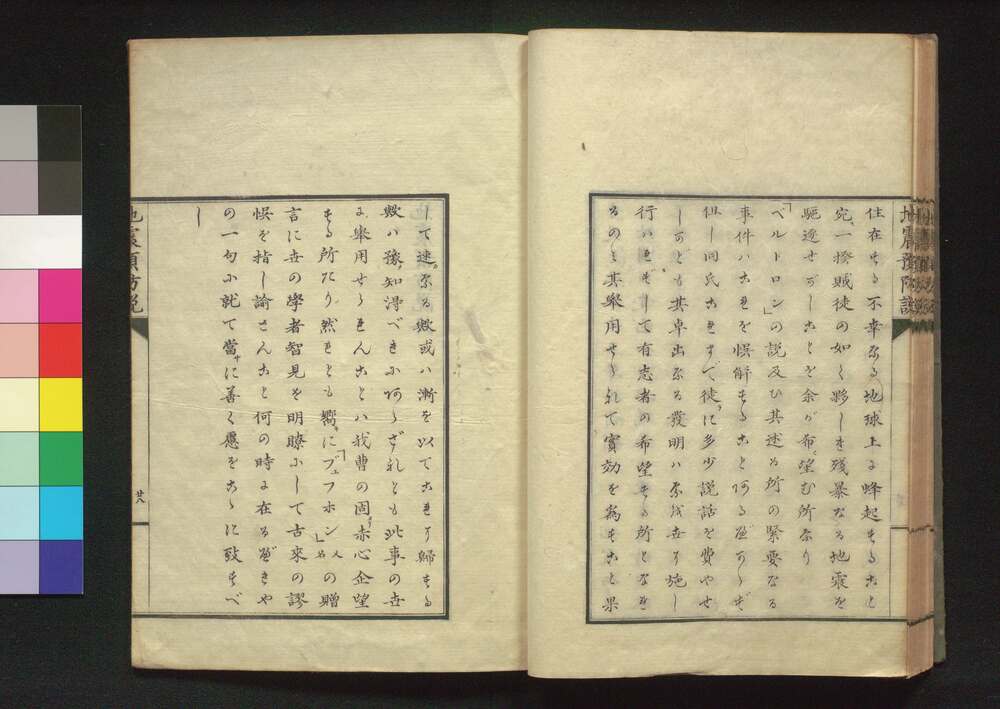 地震預防説
住在する不幸なる地球上に蜂起することと
宛一揆賊徒の如く夥しき残暴なる地震を
駆逐せずしことを余が希望む所なり
「ベルトロン」の説及ひ其述る所の緊要なる
事件ハこれを悞解することあるべからず
但し同氏これまで徒に多少説話を費やせ
しかども其卓出なる發明ハ尓後世に施し
行ハれずして有志者の希望する所となを
るのミ其擧用せられて實効を為すこと果
して速なる歟或ハ漸を以てこれに歸する
歟ハ豫知得べきにあらざれとも此事の世
に擧用せられんことハ我曹の固赤心企望
する所たり然れとも嚮に「ブュフホン」人名の贈
言に世の學者智見を明瞭にして古來の謬
悞を指し諭さんこと何の時に在るべきや
の一句に就て當に善く慮をこゝに致すべ
し
廿八
地震預防説